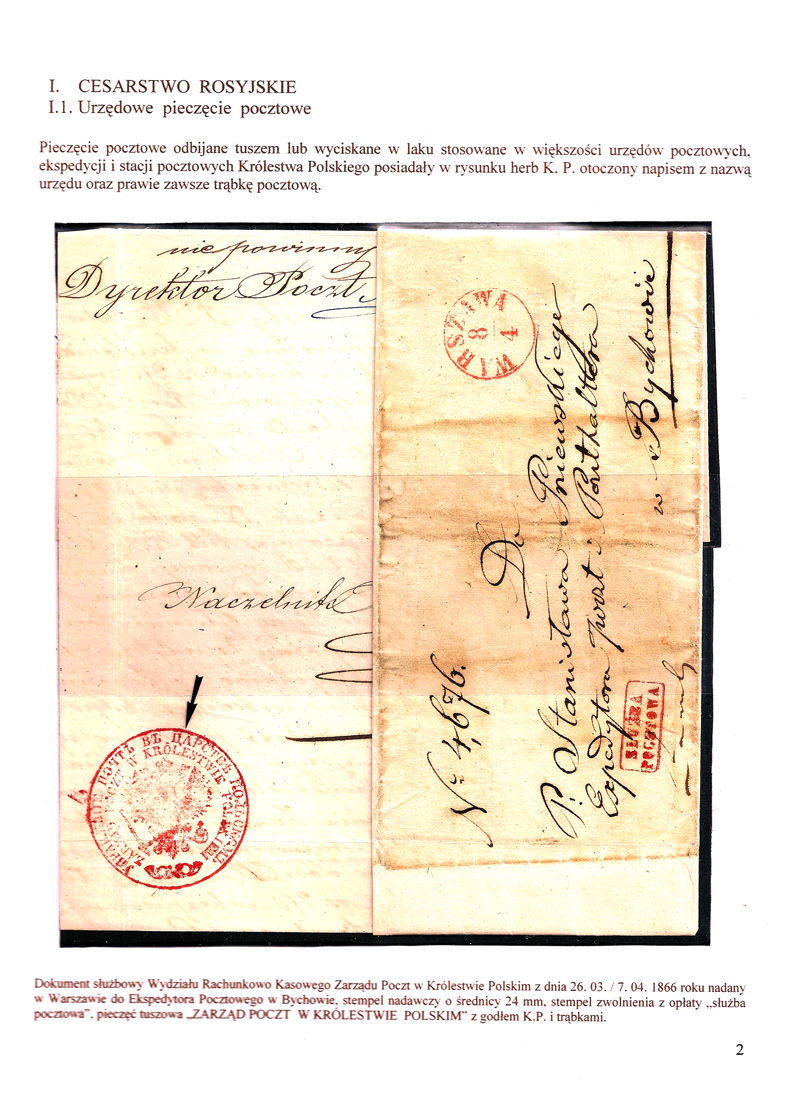 I. CESARSTWO ROSYJSKIE
I.1. Urzędowe pieczęcie pocztowe
Pieczęcie pocztowe odbijane tuszem lub wyciskane w laku stosowane w większości urzędów pocztowych,
ekspedycji i stacji pocztowych Królestwa Polskiego posiadały w rysunku herb K. P. otoczony napisem z nazwą
urzędu oraz prawie zawsze trąbkę pocztową.
nie powinny
Dyrektor Poczt
Naczelnik
УПРАВЛЕНІЕ ПОЧТЪ ВЪ ЦАРСТВѢ ПОЛЬСКОМЪ
ZARZĄD POCZT W KRÓLESTWIE POLSKIEM
WARSZAWA
8
4
No 4,676.
Do
P. Stanisława Pniewskiego
Expedytora poczt i Poczthaltera
w Bychowie
SŁUŻBA
POCZTOWA
Dokument służbowy Wydziału Rachunkowo Kasowego Zarządu Poczt w Królestwie Polskim z dnia 26. 03. / 7. 04. 1866 roku nadany
w Warszawie do Ekspedytora Pocztowego w Bychowie, stempel nadawczy o średnicy 24 mm, stempel zwolnienia z opłaty „służba
pocztowa", pieczęć tuszowa „ZARZĄD POCZT W KRÓLESTWIE POLSKIM" z godłem K.P. i trąbkami.
2